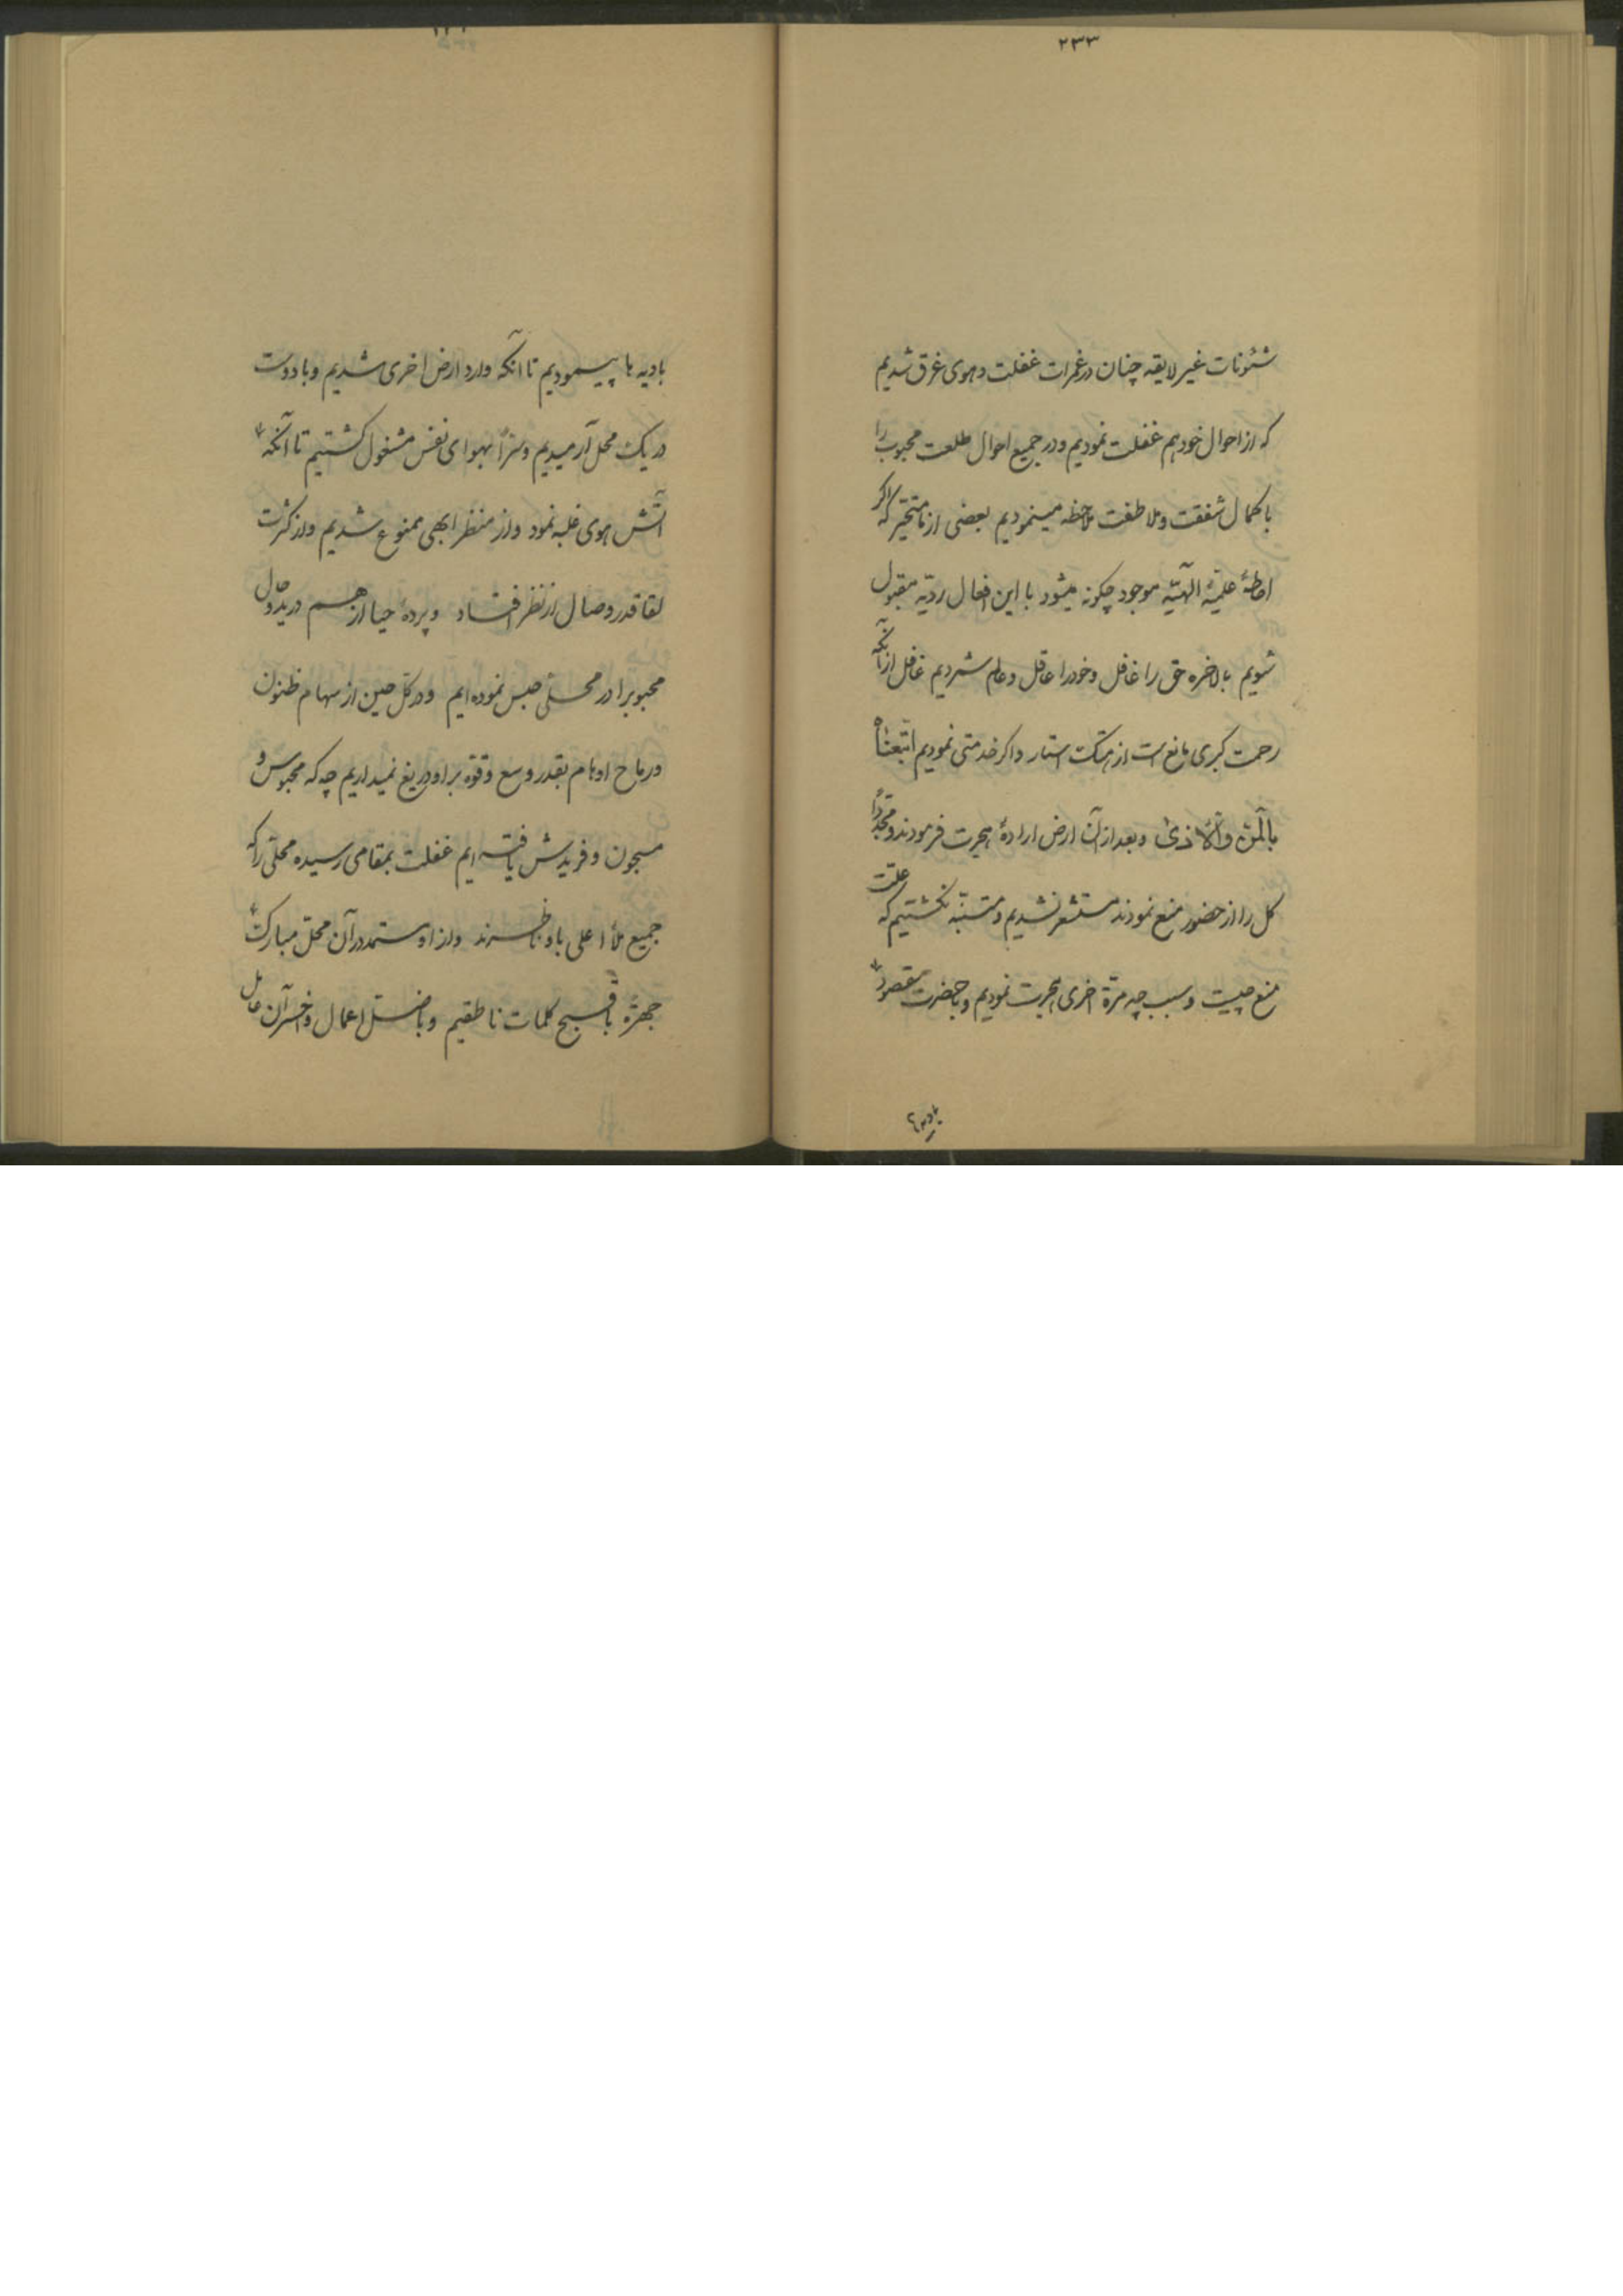 ۲۳۳
شئونات غیر لایقه چنان در غمرات غفلت و هوی غرق شدیم
که از احوال خود هم غفلت نمودیم و در جمیع احوال طلعت محبوب را
با کمال شفقت و ملاطفت ملاحظه مینمودیم بعضی از ما متحیر که اگر
احاطهٔ علمیّهٔ الهیّه موجود چگونه میشود با این افعال ردیّه مقبول
شویم بالاخره حق را غافل و خود را عاقل و عالم شمردیم غافل از آنکه
رحمت کبری مانع است از هتک استار و اگر خدمتی نمودیم اتبعناه
بالمنّ والأذی و بعد از آن ارض ارادهٔ هجرت فرمودند و مجدّداً
کل را از حضور منع نمودند مستشعر نشدیم و متنبّه نگشتیم که علّت
منع چیست و سبب چه مرّة اخری هجرت نمودیم و با حضرت مقصود
بادیه
بادیه ها پیمودیم تا آنکه وارد ارض اخری شدیم و با دوست
در یک محل آرمیدیم و سرّاً بهوای نفس مشغول گشتیم تا آنکه
آتش هوی غلبه نمود و از منظر ابهی ممنوع شدیم و از کثرت
لقا قدر وصال از نظر افتاد و پردهٔ حیا از هم درید و حال
محبوبرا در محلّی حبس نموده ایم و در کلّ حین از سهام ظنون
و رماح اوهام بقدر وسع و قوّه بر او دریغ نمیداریم چه که محبوس و
مسجون و فریدش یافته ایم غفلت بمقامی رسیده محلّی را که
جمیع ملأ اعلی باو ناظرند و از او مستمد در آن محلّ مبارک
جهرةً باقبح کلمات ناطقیم و باضلّ اعمال و اخسر آن عامل